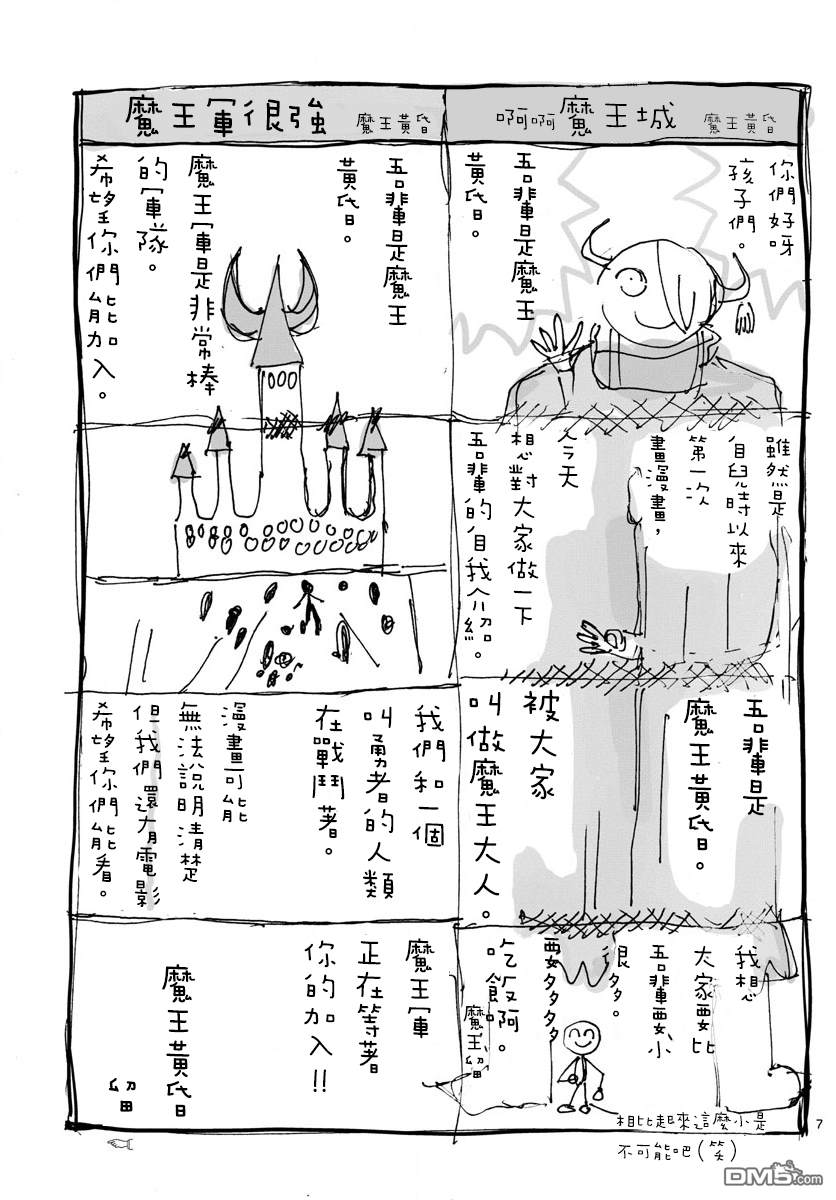 啊啊魔王城 魔王黃昏
你們好呀
孩子們。
吾輩是魔王
黃昏。
雖然是
自兒時以來
第一次
畫漫畫，
今天
想對大家做一下
吾輩的自我介紹。
吾輩是
魔王黃昏。
被大家
叫做魔王大人。
我想
大家要比
吾輩要小
很多。
要多多多多
吃飯啊。
魔王 留
相比起來這麼小是
不可能吧(笑)
魔王軍很強 魔王黃昏
吾輩是魔王
黃昏。
魔王軍是非常棒
的軍隊。
希望你們能加入。
我們和一個
叫勇者的人類
在戰鬥著。
漫畫可能
無法說明清楚
但我們還有電影
希望你們能看。
魔王軍
正在等著
你的加入!!
魔王黃昏
留
7
DM5.com